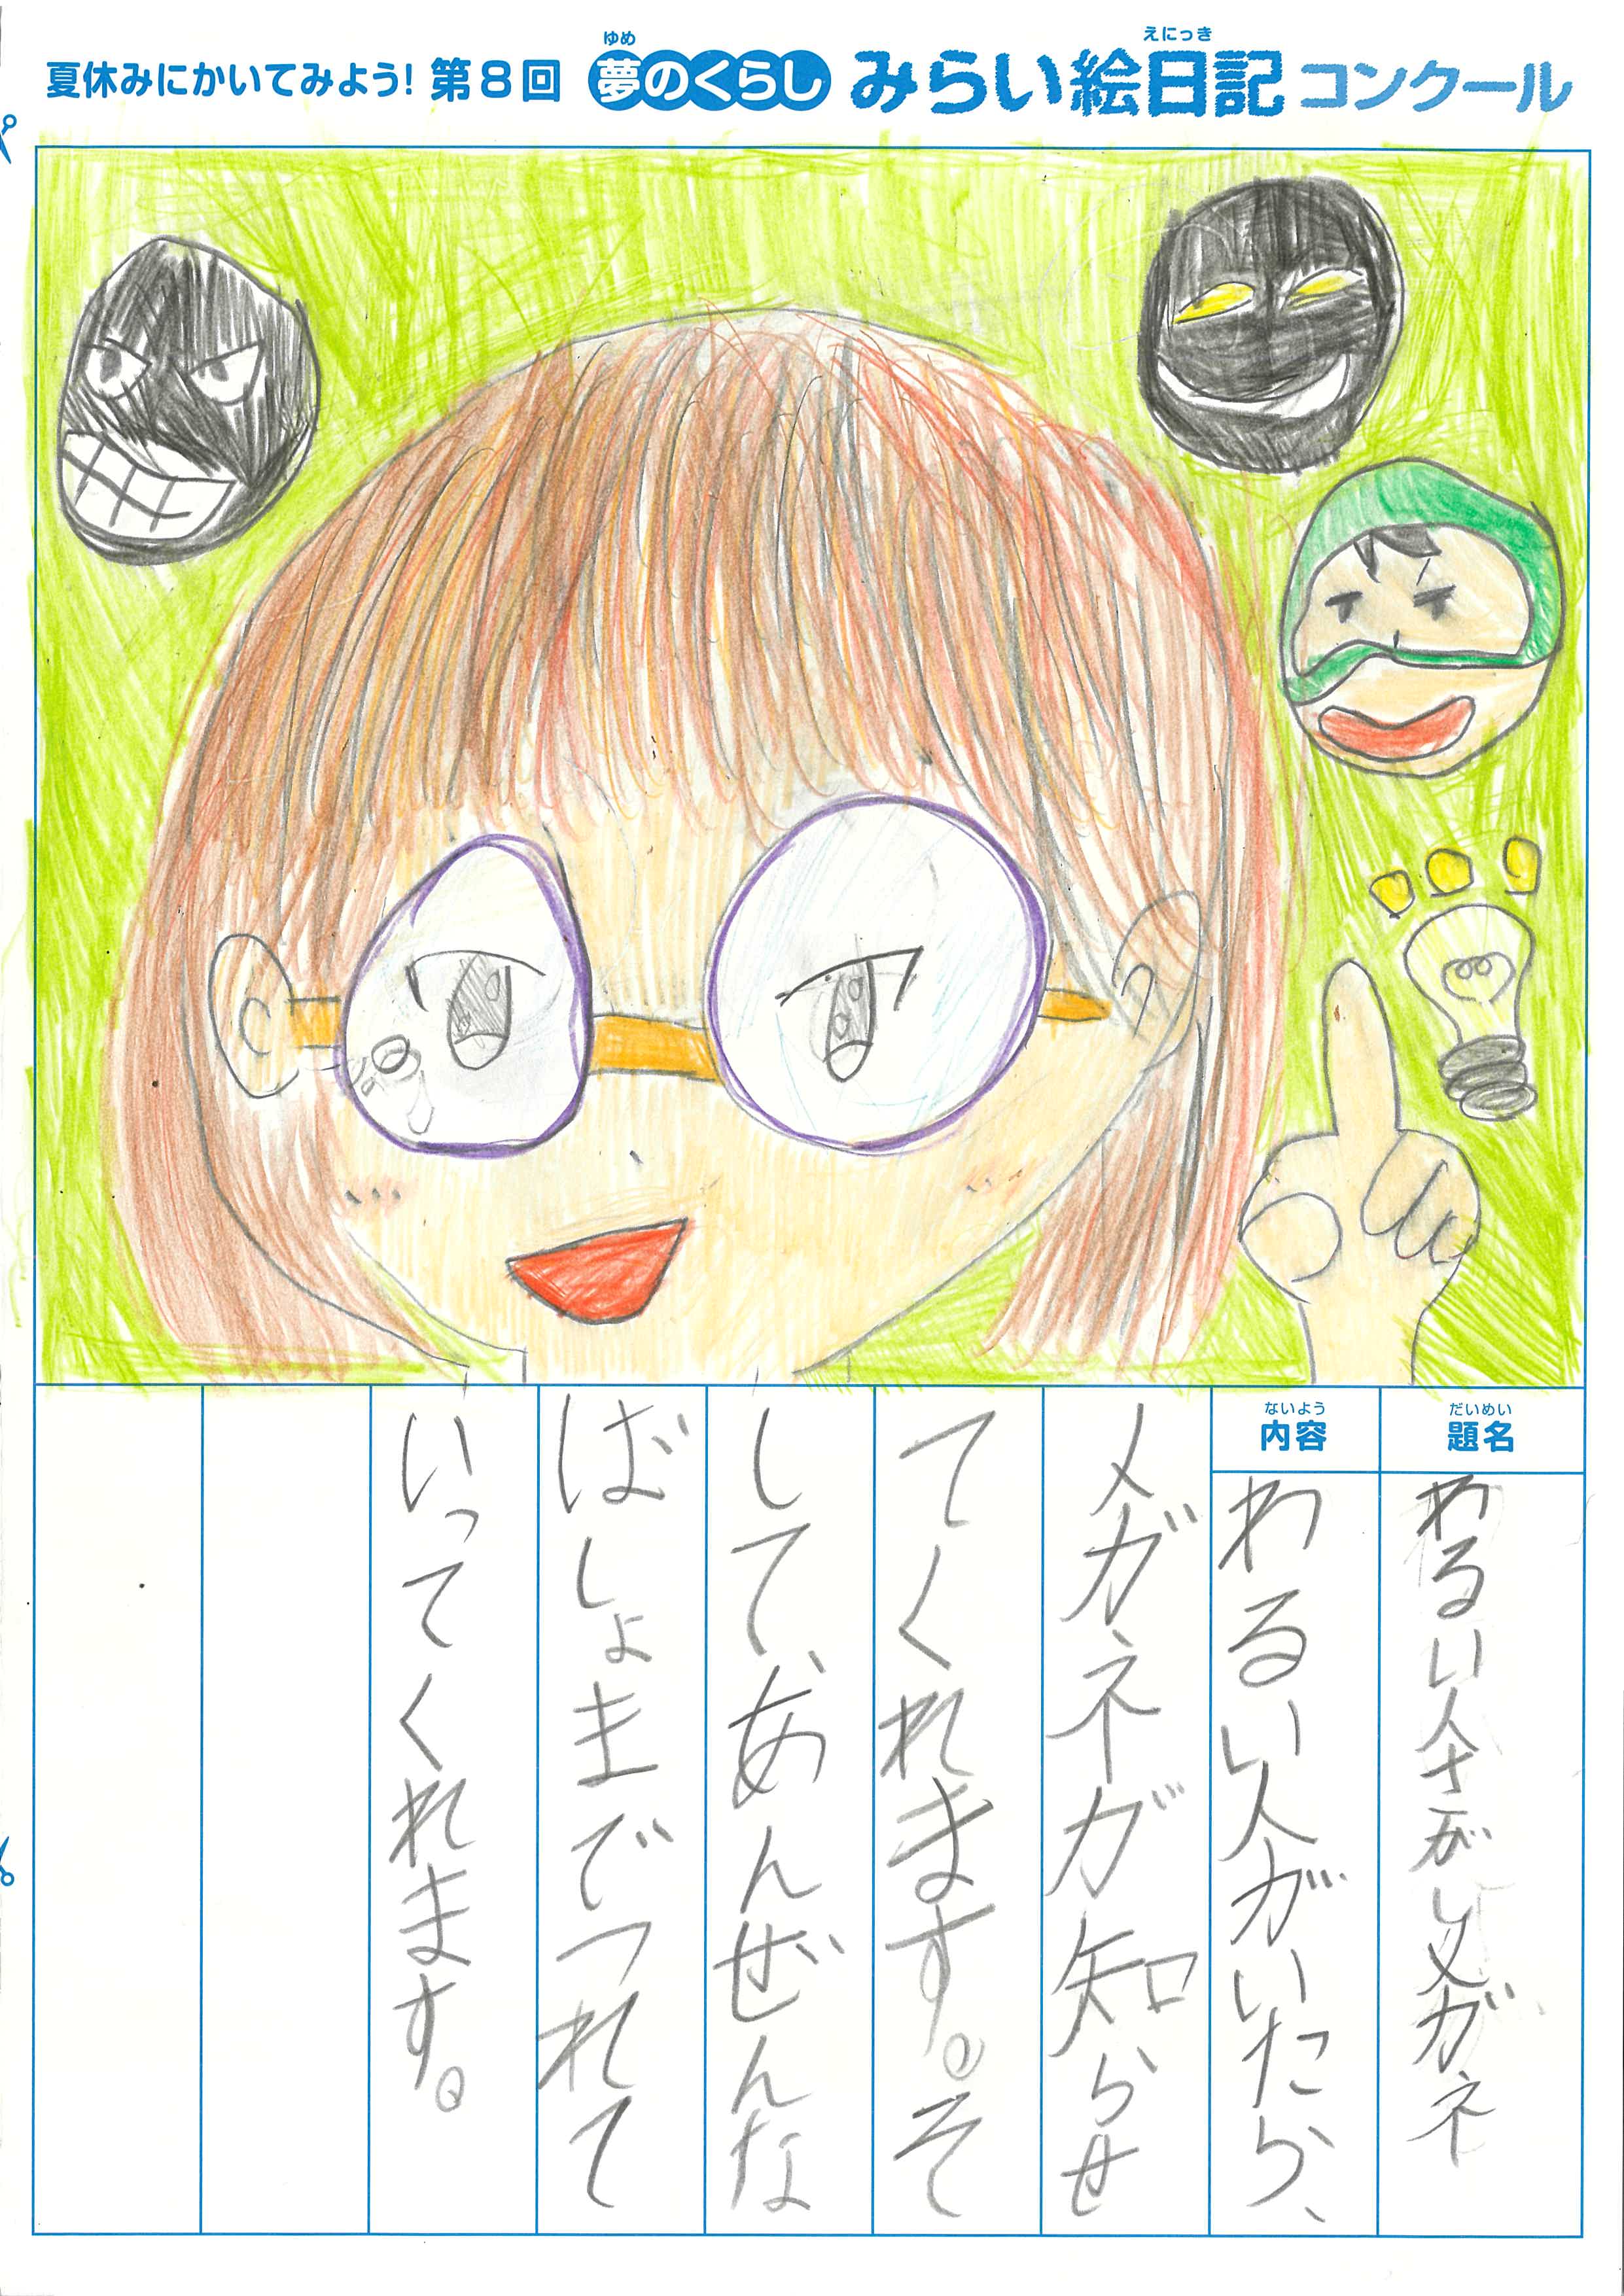 夏休みにかいてみよう！ 第8回 夢のくらし みらい絵日記コンクール
ゆめ
えにっき
だいめい
題名
わるい人さがしメガネ
ないよう
内容
わるい人がいたら、
メガネが知らせ
てくれます。そ
して、あんぜんな
ばしょまでつれて
いってくれます。